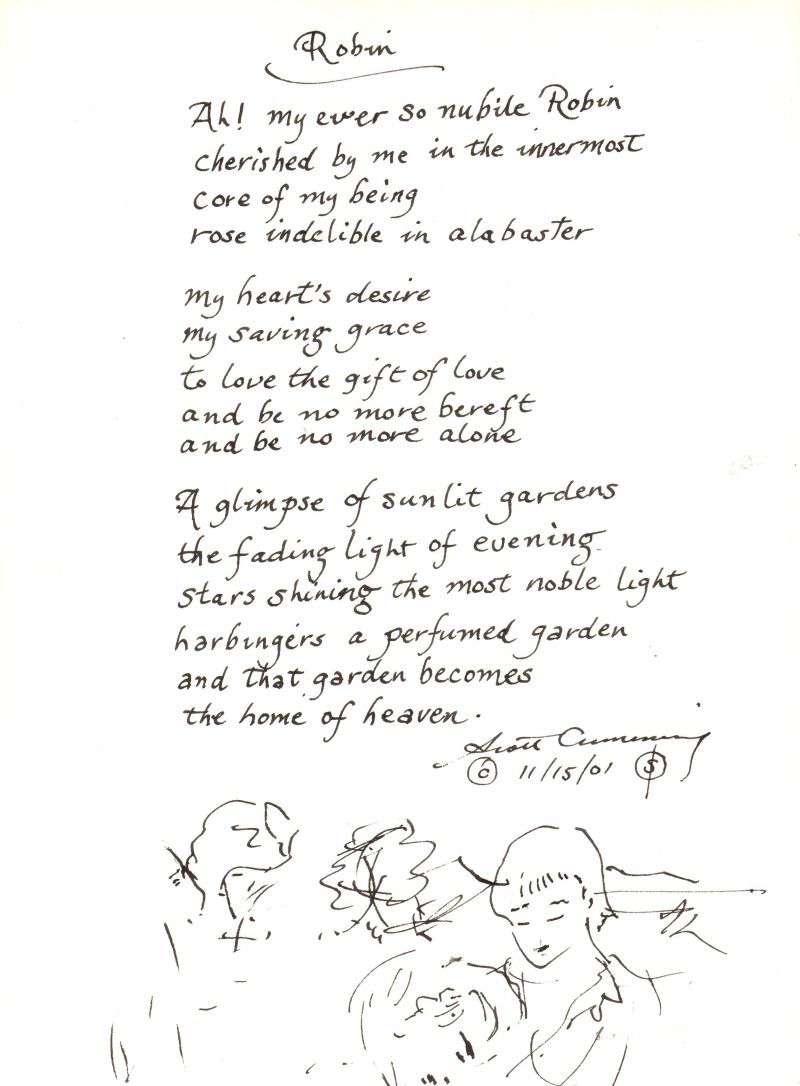 Robin
Ah! my ever so nubile Robin
cherished by me in the innermost
core of my being
rose indelible in alabaster
my heart's desire
my saving grace
to love the gift of love
and be no more bereft
and be no more alone
A glimpse of sunlit gardens
the fading light of evening
stars shining the most noble light
harbingers a perfumed garden
and that garden becomes
the home of heaven.
Scott Cumming
© 11/15/01 $